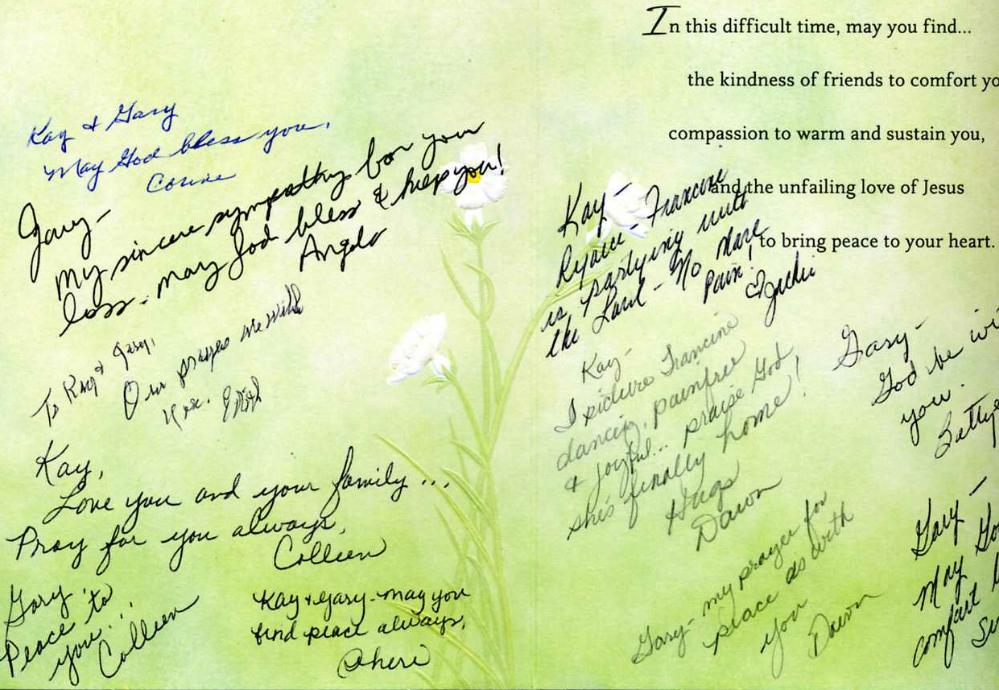 In this difficult time, may you find...
the kindness of friends to comfort yo
compassion to warm and sustain you,
and the unfailing love of Jesus
to bring peace to your heart.
Kay & Gary
May God bless you,
Corine
Gary-
My sincere sympathy for your
loss - may God bless & keep you!
Angela
To Kay & Gary,
Our prayers are with
you. Edith
Kay,
Love you and your family...
Pray for you always,
Colleen
Gary,
Peace to
you...
Colleen
Kay & Gary - may you
find peace always,
Cheri
Kay -
Rejoice - Francine
is partying with
the Lord - No More
Pain!
Jackie
Kay-
I picture Francine
dancing, painfree
& joyful... praise God
she's finally home!
Hugs
Dawn
Gary - my prayer for
peace as with
you
Dawn
Gary -
God be wi
you.
Betty
Gary -
May Go
comfort